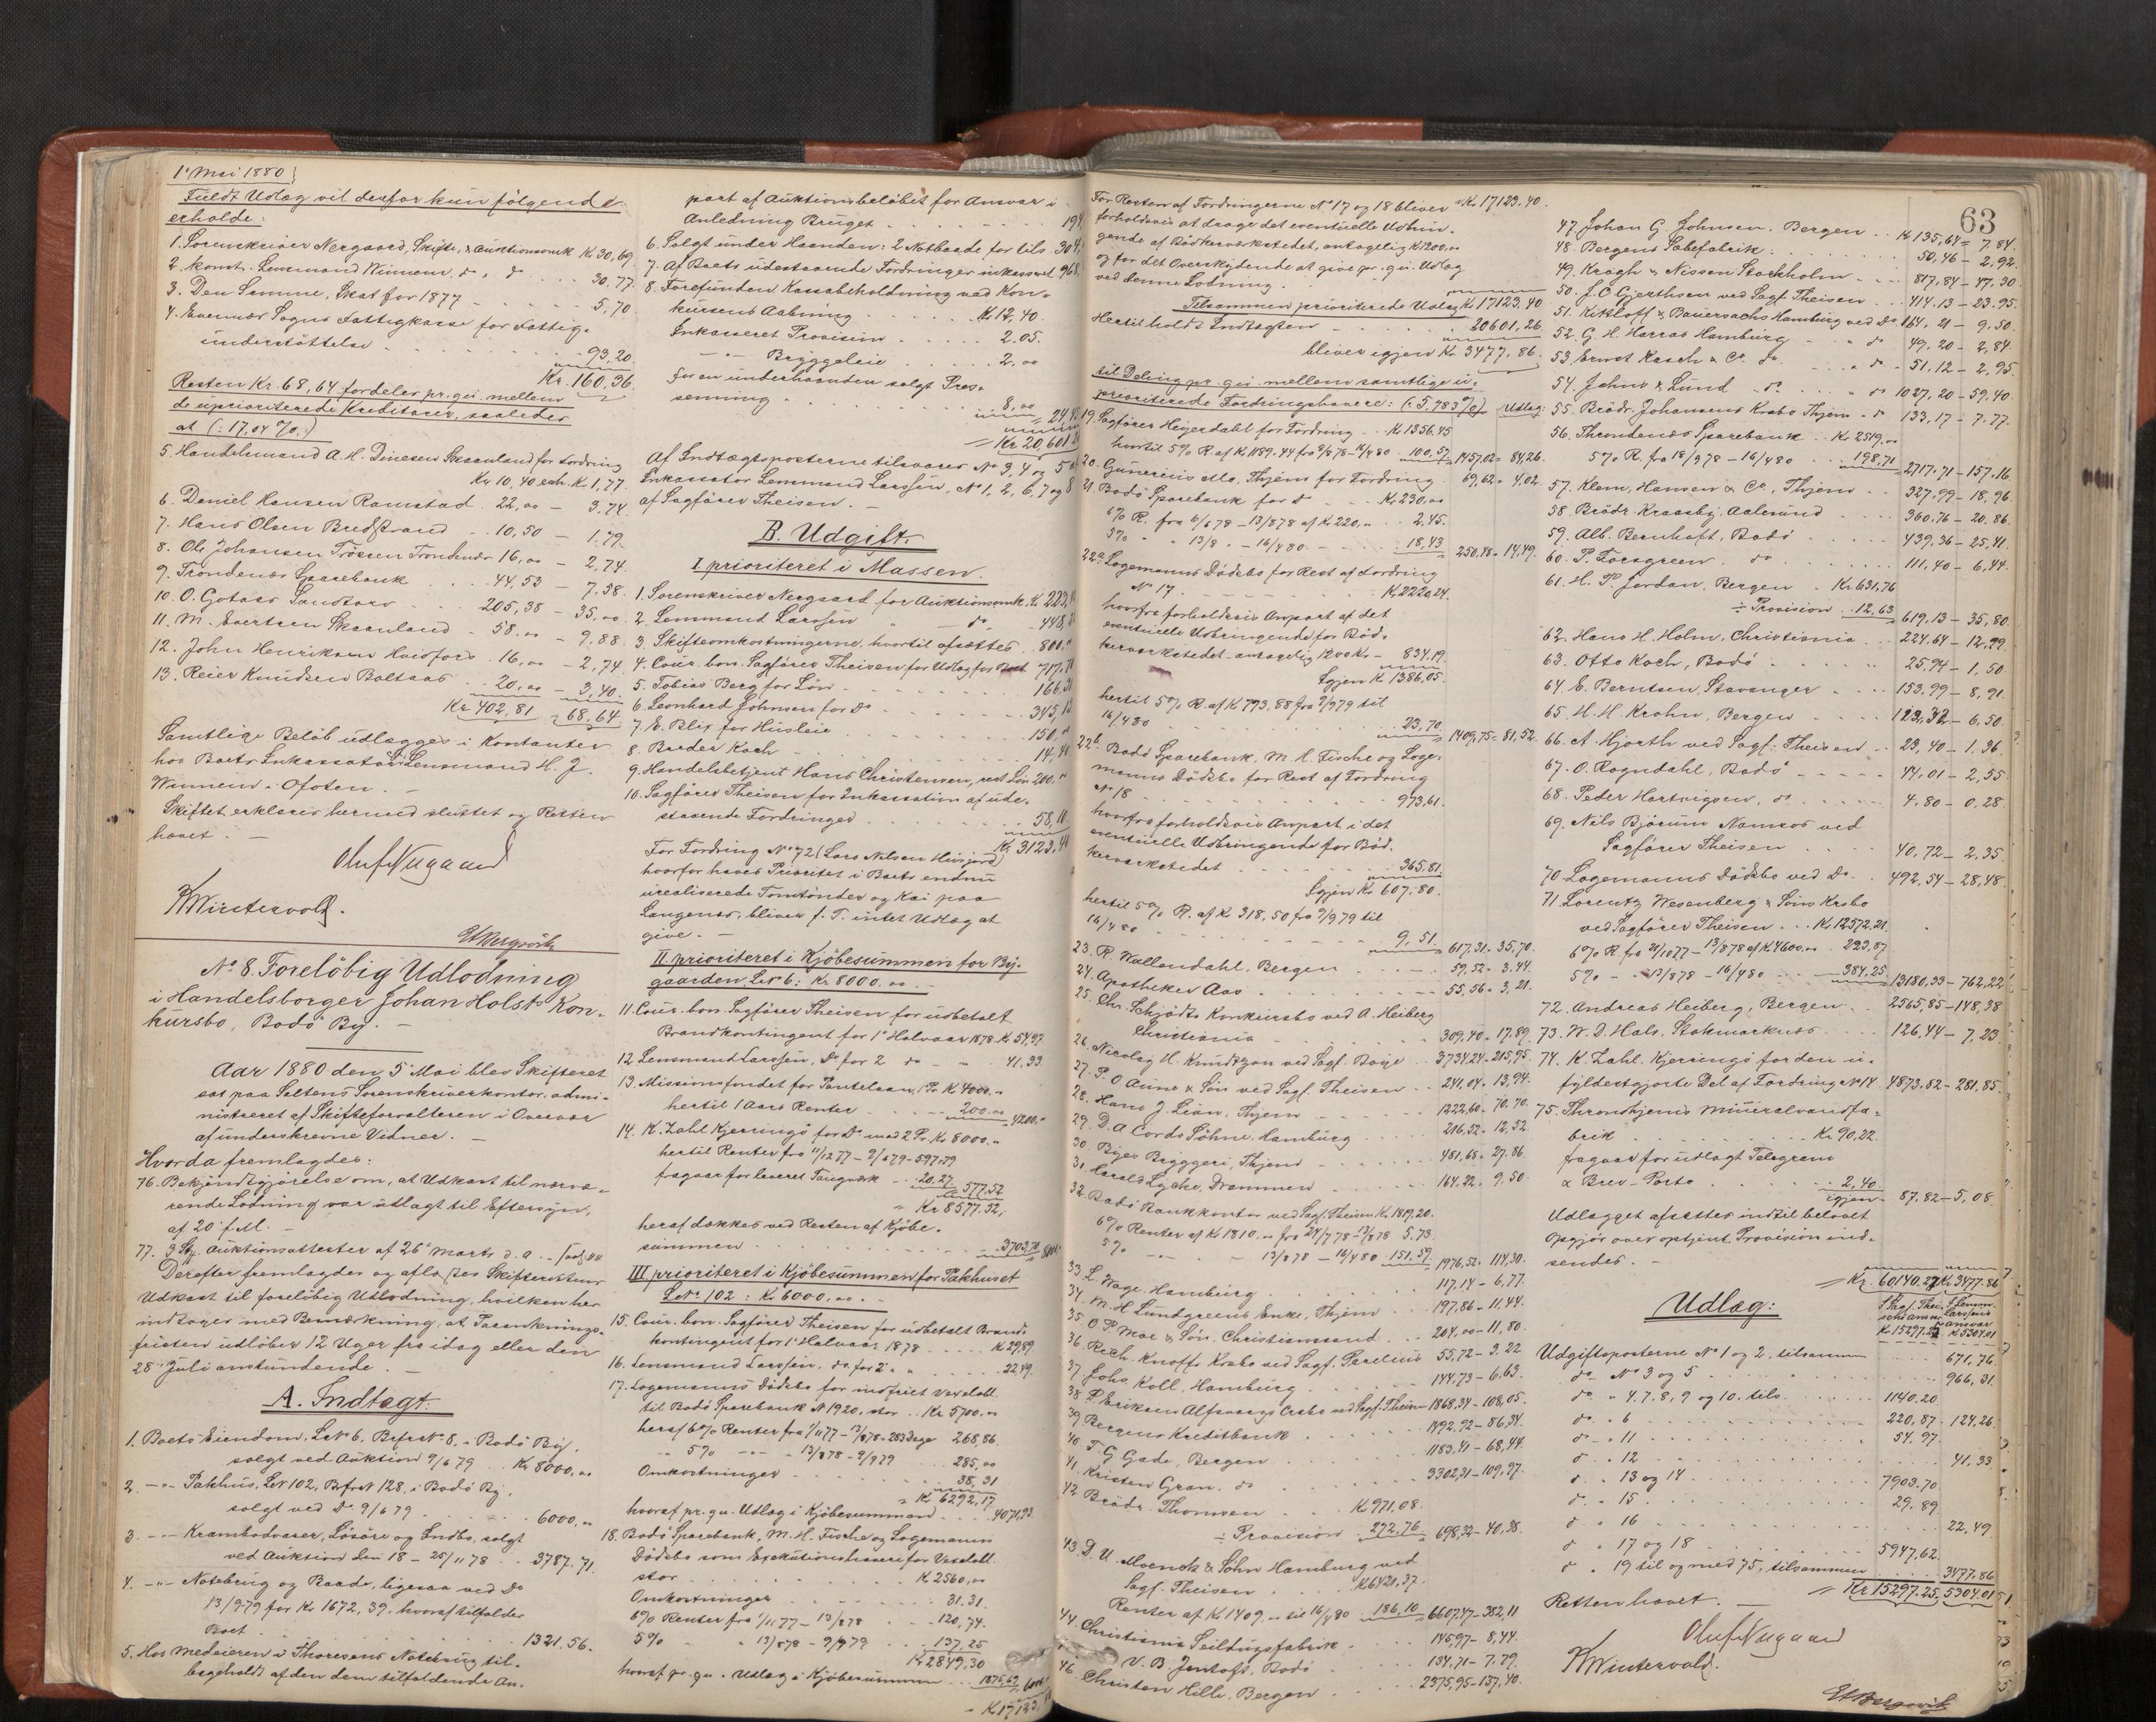 1' Mai 1880
Fuldt Udlæg vil derfor kun følgende
erholde:
1. Sorenskriver Nergaard, Skifte- & Auktionsomk Kr 30,69.
2. Konst. Lensmand Winnem, do. do 30.77
3. Den Samme, Skat for 1877 - - - 5,70
4. Evenæs Sogns Fattigkasse for Fattig-
understøttelse . . . 93.20
Kr. 160,36
Resten Kr. 68,64 fordeles pr. qvi. mellem
de uprioriterede Kreditorer, saaledes
at (: 17,04 %.:)
5. Handelsmand A. H. Dinesen Skaanland for Fordring
Kr 10,40 erh. K. 1,77.
6. Daniel Hansen Ramstad . 22,00 - 3,74.
7. Hans Olsen Bredstrand . . 10,50 - 1.79.
8. Ole Johansen Trondenæs 16,00 - 2,74.
9. Trondenæs Sparebank . . . 44,53 - 7,58.
10. O. Gotaas Sandtorv . . 205,38 - 35,00.
11. M. Evertsen Skaanland . 58,00 - 9,88.
12. John Henriksen Kvidfors . 16,00 - 2,74.
13. Reier Knudsen Boltaas . . 20,00 - 3,40.
Kr 402,81 = 68,64.
Samtlige Beløb udlægges i Kontanter
hos Boets Inkassator Lensmand H. J.
Winnem i Ofoten. -
Skiftet erklæres hermed sluttet og Retten
hævet. -
Oluf Nugaard
K Wintervold.
Et Bergsvik
No 8. Foreløbig Udlodning
i Handelsborger Johan Holsts Kon-
kursbo, Bodø By. -
Aar 1880 den 5' Mai blev Skifteret
sat paa Saltens Sorenskriverkontor, admi-
nistreret af Skifteforvalteren i Overvær
af underskrevne Vidner. -
Hvorda fremlagdes:
76. Bekjendtgjørelse om, at Udkast til nærvæ-
rende Lodning var utlagt til Eftersyn,
af 20' f. M. -
77. 3 St. Auktionsattester af 26' Marts d. a. -
Derefter fremlagdes og aflæstes Skifterettens
Udkast til foreløbig Udlodning, hvilken her
indtages med Bemærkning, at Paaanknings-
fristen udløber 12 Uger fra idag eller den
28' Juli anstundende. -
A. Indtægt:
1. Boets Eiendom, Lr No 6, Brfr No 8, i Bodø By,
solgt ved Auktion 9/6 79 . . Kr 8000,00
2. -"- Pakhus, Lr No 102, Brfr No 128, i Bodø By,
solgt ved Do 9/6 79 . . . 6000,00
3. -"- Krambodvarer, Løsøre og Indbo, solgt
ved Auktion den 18 - 25/11 78 . . 3787.71.
4. -"- Notebrug og Baade, ligesaa ved Do
13/9 79 for Kr 1672,39, hvoraf tilfalder
Boet . . . 1321,56.
5. Hos Medeieren i Thoresens Notebrug til-
bageholdt af den dem tilfaldende An-
part af Auktionsbeløbet for Ansvar i
Anledning Bruget . . . 194,
6. Solgt under Haanden: 2 Notbaade for tils. 304,
7. Af Boets udestaaende Fordringer inkasseret 968,
8. Forefunden Kassabeholdning ved Kon-
kursens Aabning . . . K 12,40.
Inkasseret Provision . . . 2.05.
-"- Bryggeleie . . . 2,00
For en underhaanden solgt Pres-
senning . . . 8,00 24
Kr 20,601
Af Indtægtsposterne tilsvarer No 3, 4 og 5 af
Inkassator Lensmand Larssen, No 1, 2, 6, 7 og 8
af Sagfører Theisen. -
B. Udgift.
I prioriteret i Massen.
1. Sorenskriver Nergaard for Auktionsomk. Kr 223,
2. Lensmand Larssen " - do - 448,
3. Skifteomkostningerne, hvortil afsættes . 800,"
4. Cour. bon. Sagfører Theisen for Udlæg for Boet 717,
5. Tobias Berg for Løn . . . 166,
6. Leonhard Johnsen for Do . . . 345,
7. E. Blix for Husleie . . . 150,"
8. Bæder Koch . . . 14,40
9. Handelsbetjent Hans Christensen, rest Løn 200,"
10. Sagfører Theisen for Inkassation af ude-
staaende Fordringer . . . 58,10.
Kr. 3123,
For Fordring No 72 (Lars Nilsen)
hvorfor haves Prioritet i Boets endnu
urealiserede Tomtønder og Kai paa
Langenes, bliver f. T. intet Udlæg at
give. -
II prioriteret i Kjøbesummen for By-
gaarden Lr No 6: Kr 8000,00. -
11. Cour. bon. Sagfører Theisen for udbetalt
Brandkontingent for 1' Halvaar 1878 K 54,97
12. Lensmand Larssen, Do for 2' do - - 41.33
13. Missionsfondet for Pantelaan, Pr. K 4000,"
hertil 1 Aars Renter . . . 200.00 4200."
14. K. Zahl Kjerringø for Do med 2 Pr. Kr 8000.00
hertil Renter fra 11/12 77 - 9/6 79 - 597,79
fragaar for leveret Tougværk . . 20,27 577,52
Kr 8577.52,
heraf dækkes ved Resten af Kjøbe-
summen . . . 3703,70 8000.
III prioriteret i Kjøbesummen for Pakhuset
Lr No 102: Kr 6000,00. -
15. Cour. bon. Sagfører Theisen for udbetalt Brand-
kontingent for 1' Halvaar 1878 . . . K 29,89
16. Lensmand Larssen, do for 2' " . . . 22,49.
17. Logemanns Dødsbo for indfriet Vexelobl.
til Bodø Sparebank N 1920, stor . . Kr 5700,00
heraf 6% Renter fra 1/11 77 - 13/8 78 = 283 Dage 268,86.
" 5% - " - 13/8 78 - 9/9 79 . . 285,00
Omkostninger . . . 38,31
K 6292,17
hvoraf pr. qu. Udlæg i Kjøbesummen . . 4071,93
18. Bodø Sparebank, M. H. Fische og Logemanns
Dødsbo som Exekutionshavere for Vexelobl.
stor . . . K 2560,00
Omkostninger . . . 31.31.
6% Renter fra 1/11 77 - 13/8 78 . . 120,74.
5% " " 13/8 78 - 9/9 79 . . 137,25
K 2849,30
hvoraf pr. qu. Udlæg i Kjøbesummen . . 1875,69 6000
- K 17123,
63
For Resten af Fordringerne No 17 og 18 bliver = Kr. 17123.40.
forholdsvis at drage det eventuelle Udbrin-
gende af Bødkerværkstedet, antagelig K 1200,00
og for det Overskydende at give pr. qu. Udlæg
ved denne Lodning.
Tilsammen prioriterede Udlæg Kr 17123,40
Hertil holdt Indtægten . . . 20601,26.
bliver igjen Kr. 3477,86.
til Deling pr. qu. mellem samtlige u-
prioriterede Fordringshavere: (: 5,783 %) Udlæg:
19. Sagfører Heyerdahl for Fordring . . Kr 1356.45
hvortil 5% R. af K 1189.44 fra 9/8 78 - 16/4 80 . 100,57 1457,02 = 84,26.
20. Gunerius Mo, Thjem for Fordring . 69,62 = 4,02.
21. Bodø Sparebank for do . . Kr. 230,00
6% R. fra 6/6 78 - 13/8 78 af K 220,00 . . 2,45.
5% " " 13/8 " - 16/4 80 - - 18,43 250,48 = 14,49.
22a. Logemanns Dødsbo for Rest af Fordring
No 17 . . . K. 2220,24.
hvorfra forholdsvis Anpart af det
eventuelle Udbringende for Bød-
kerværkstedet - antagelig 1200 Kr - 834.19.
Igjen K. 1386,05.
hertil 5% R. af K 793,88 fra 9/9 79 til
16/4 80 . . . 23,70 1409,75 = 81,52.
22b. Bodø Sparebank, M. H. Fische og Loge-
manns Dødsbo for Rest af Fordring
No 18 . . . 973,61.
hvorfra forholdsvis Anpart i det
eventuelle Udbringende for Bød-
kerværkstedet . . . 365,81.
Igjen K. 607,80.
hertil 5% R. af K. 318,50 fra 9/9 79 til
16/4 80 . . . 9,51. 617,31 = 35,70.
23. R. Wallendahl, Bergen . . . 59,52 = 3.44.
24. Apotheker Aas . . . 55,56 = 3,21.
25. Chr. Schjødts Konkursbo ved A. Heiberg
Christiania . . . 309,40 = 17,89.
26. Nicolay H. Knudtzon ved Sagf. Boye . 3734,24 = 215,95.
27. P. O Aune & Søn ved Sagf. Theisen . . 241,04 = 13,94.
28. Hans J. Lian, Thjem . . . 1222,60 = 70.70.
29. D. A Cords Söhne, Hamburg . . . 216,52 = 12,52
30 Byes Bryggeri, Thjem . . . 481,68 = 27.86.
31. Harald Lyche, Drammen . . . 164,22 = 9,50.
32. Bodø Bankkontor ved Sagf. Theisen K. 1819,20.
6% Renter af K 1810,00 fra 24/7 78 - 13/8 78 5.73.
5% - " - 13/8 78 - 16/4 80 . 151,59 1976,52 = 114,30.
33. L. Wage, Hamburg . . . 117.14 - 6,77.
34. M. H. Lundgreens Enke, Thjem . . 197,86 - 11,44.
35. O P. Moe & Søn, Christianssand . . 204,00 - 11,80.
36. Rich. Knoffs Krsbo ved Sagf. Parelius 55,72 - 3.22
37. Johs. Koll, Hamburg . . . 144,73 - 6,63.
38. P. Eriksen Alfsvaags Krsbo ved Sagf. Theisen 1868,34 - 108,05.
39. Bergens Kreditbank . . . 1492,92 - 86,34.
40. F. G Gade, Bergen . . . 1183,41 - 68,44.
41. Kristen Gran, do . . . 3302,31 - 109,97.
42. Brødr. Thomsen . . . K 971,08.
÷ Provision . 272,76 698,32 - 40,38.
43. D. U. Moenck & Söhn Hamburg ved
Sagf. Theisen . . . K 6421,37.
Renter af K 1409,00 til 16/4 80 186,10 6607,47 - 382,11
44. Christiania Seildugsfabrik . . . 145,97 - 8,44.
V. B. Jentoft, Bodø . . . 134,71 - 7.79.
46. Christen Hille, Bergen . . . 2375,95 - 137,40.
47. Johan G. Johnsen, Bergen . . K 135,64 = 7.84.
48. Bergens Sæbefabrik . . . 50,46 - 2,92.
49. Kragh & Nissen Stockholm . . . 817,84 - 47,30
50. J. C Gjerthsen ved Sagf. Theisen . . 414.13 - 23.95.
51. Kitzloff & Bauersachs Hamburg ved Do 164,21 - 9,50.
52. G. H. Harras Hamburg " do 49,20 - 2,84.
53. Ernst Kasch & Co. do " do - 51.12 - 2,95.
54. Johns & Lund do " do 1027.20 - 59,40.
55. Brødr. Johansens Krsbo Thjem " do 133,17 - 7.77.
56. Throndenæs Sparebank . . Kr 2519,00
5% R. fra 18/9 78 - 16/4 80 . . . 198,71 2717.71 - 157.16.
57. Klem, Hansen & Co, Thjem . . 327,99 - 18,96.
58. Brødr. Kraasby, Aalesund . . . 360,76 - 20,86.
59. Alb. Bernhoft, Bodø . . . 439,36 - 25,41.
60. P. Forsgreen, do . . . 111,40 - 6,44.
61. H. P. Jordan, Bergen . Kr 631,76
÷ Provision . . 12,63 619,13 - 35,80
62. Hans H. Holm, Christiania . . 224,64 - 12,99.
63. Otto Koch, Bodø . . . 25,94 - 1,50.
64. E. Berntsen, Stavanger . . . 153,99 - 8,91.
65. H. H. Krohn, Bergen . . . 112,32 - 6,50.
66. A Hjorth ved Sagf. Theisen . . 23,40 - 1,36.
67. O. Rogndahl, Bodø . . . 44,01 - 2,55.
68. Peder Hartvigsen, do . . . 4,80 - 0,28.
69. Nils Bjørum Namsos ved
Sagfører Theisen . . . 40,72 - 2,35.
70. Logemanns Dødsbo ved Do . . 492,54 - 28,48.
71. Lorentz Wesenberg & Søns Krsbo
ved Sagfører Theisen . . . K 12572,21.
6% R. fra 21/10 77 - 13/8 78 af K 4600,00 . 223,87
5% - " 13/8 78 - 16/4 80 . . . 384,25 13180,33 - 762,22
72. Andreas Heiberg, Bergen . . 2565,85 - 148,38
73. W. D. Hals, Stokmarknæs . . 126,44 - 7,23
74. K. Zahl, Kjerringø for den u-
fyldestgjorte Del af Fordring No 14 4873,82 - 281,85.
75. Throndhjems Mineralvandfa-
brik . . . Kr 90,22.
fragaar for udlagt Telegram
& Brev-Porto . . . 2,40.
igjen - 87.82 - 5,08
Udlægget afsættes indtil belovet
Opgjør over optjent Provision ind-
sendes. -
= Kr. 60140.27 Kr 3477.86
Udlæg:
I Sagf. Thei- I Lensm.
sens ansvar Larssens ansvar
Kr 15297.25 K 5304.01
Udgiftsposterne No 1 og 2, tilsammen . . 671,76.
do - No 3 og 5 . . . 966,31.
do " 4.7.8, 9 og 10, tils. . . 1140.20
do " 6 . . . 220,87 - 124,26.
do " 11 . . . 54.97.
do " 12 . . . 41,33
do " 13 og 14 . . . 7903.70.
do " 15 . . . 29.89.
do " 16 . . . 22,49
do " 17 og 18 . . . 5947,62.
do " 19 til og med 75, tilsammen . . 3477.86
= Kr 15297.25. 5304.01
Retten hævet. -
Oluf Nugaard
K Wintervold.
Et Bergsvik